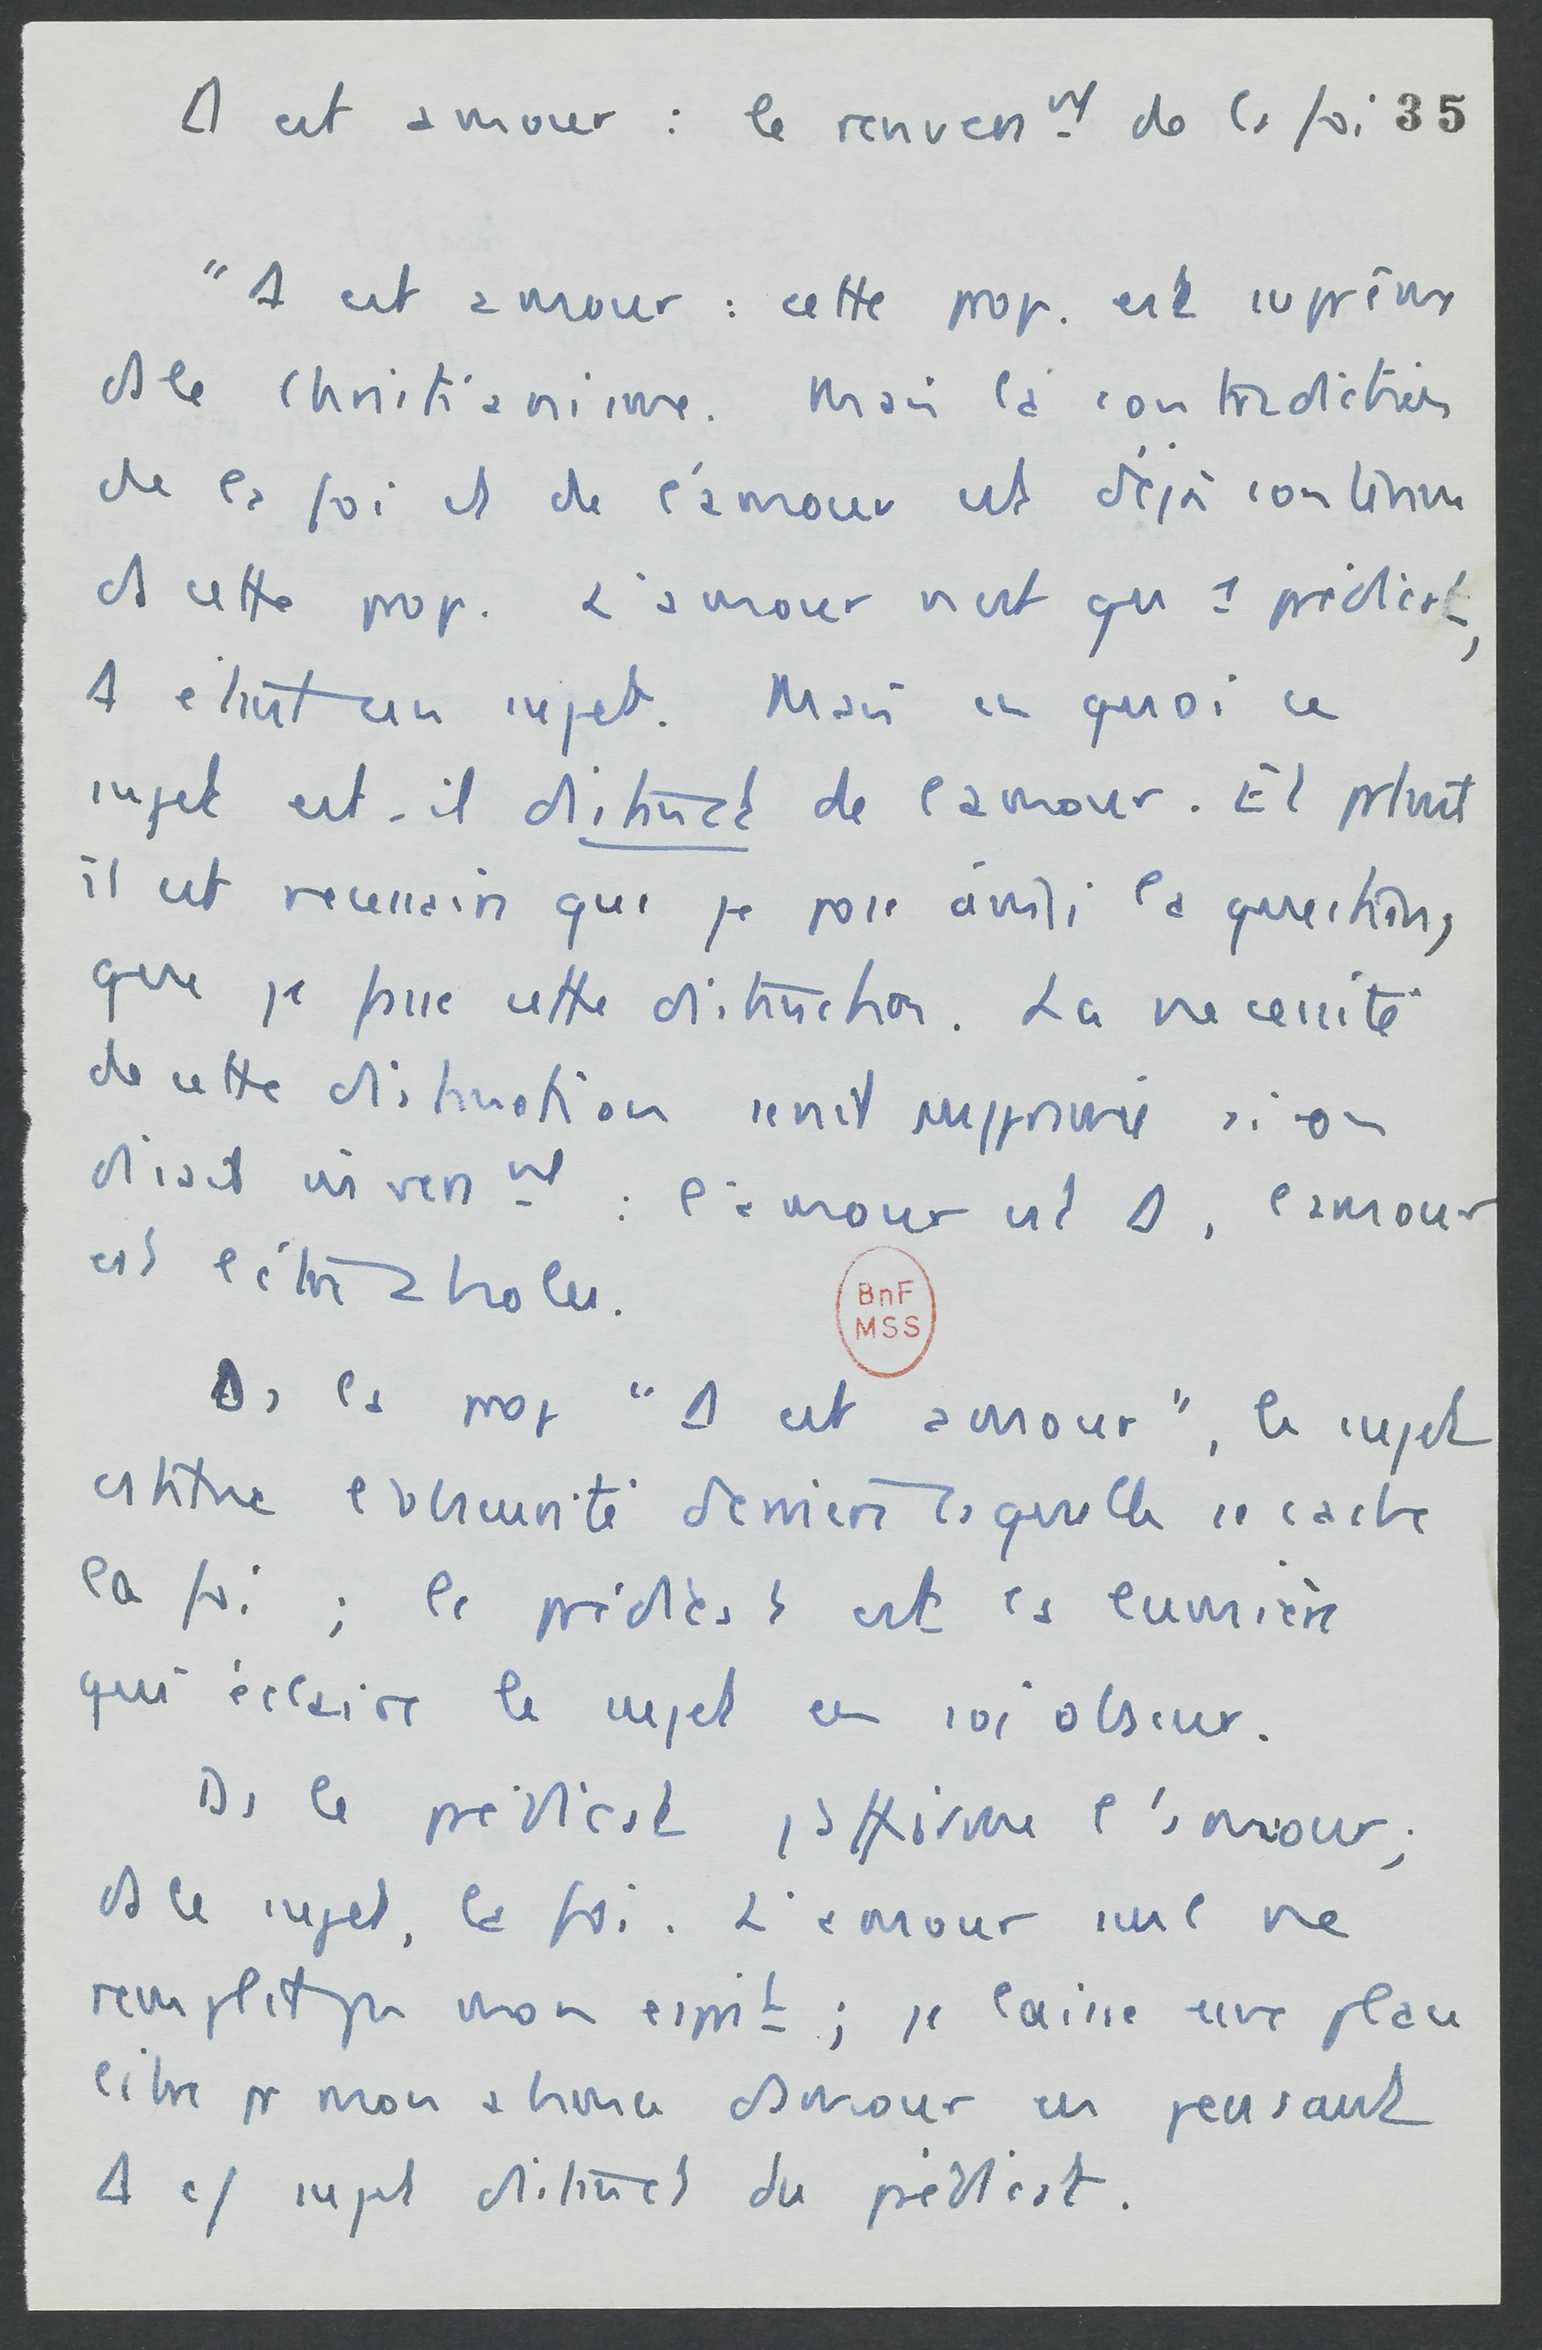 Δ est amour : le renvers.mt de la foi 35
"Δ est amour : cette prop. est suprême
ds le christianisme. Mais la contradiction
de la foi et de l'amour est déjà contenue
ds cette prop. L'amour n'est qu'1 prédicat,
Δ étant un sujet. Mais en quoi ce
sujet est-il distinct de l'amour. Et pourtant
il est necessaire que je pose ainsi la question,
que je fasse cette distinction. La necessité
de cette distinction serait supprimée si on
disait invers.mt : l'amour est Δ, l'amour
est l'être absolu.
BnF
MSS
Ds la prop "Δ est amour", le sujet
est l'obscurité derrière laquelle se cache
la foi ; le prédicat est la lumière
qui éclaire le sujet en soi obscur.
Ds le prédicat j'affirme l'amour ;
ds le sujet, la foi. L'amour seul ne
remplit pas mon esprit ; je laisse une place
libre pr mon absence d'amour en pensant
Δ c/ sujet distinct du prédicat.